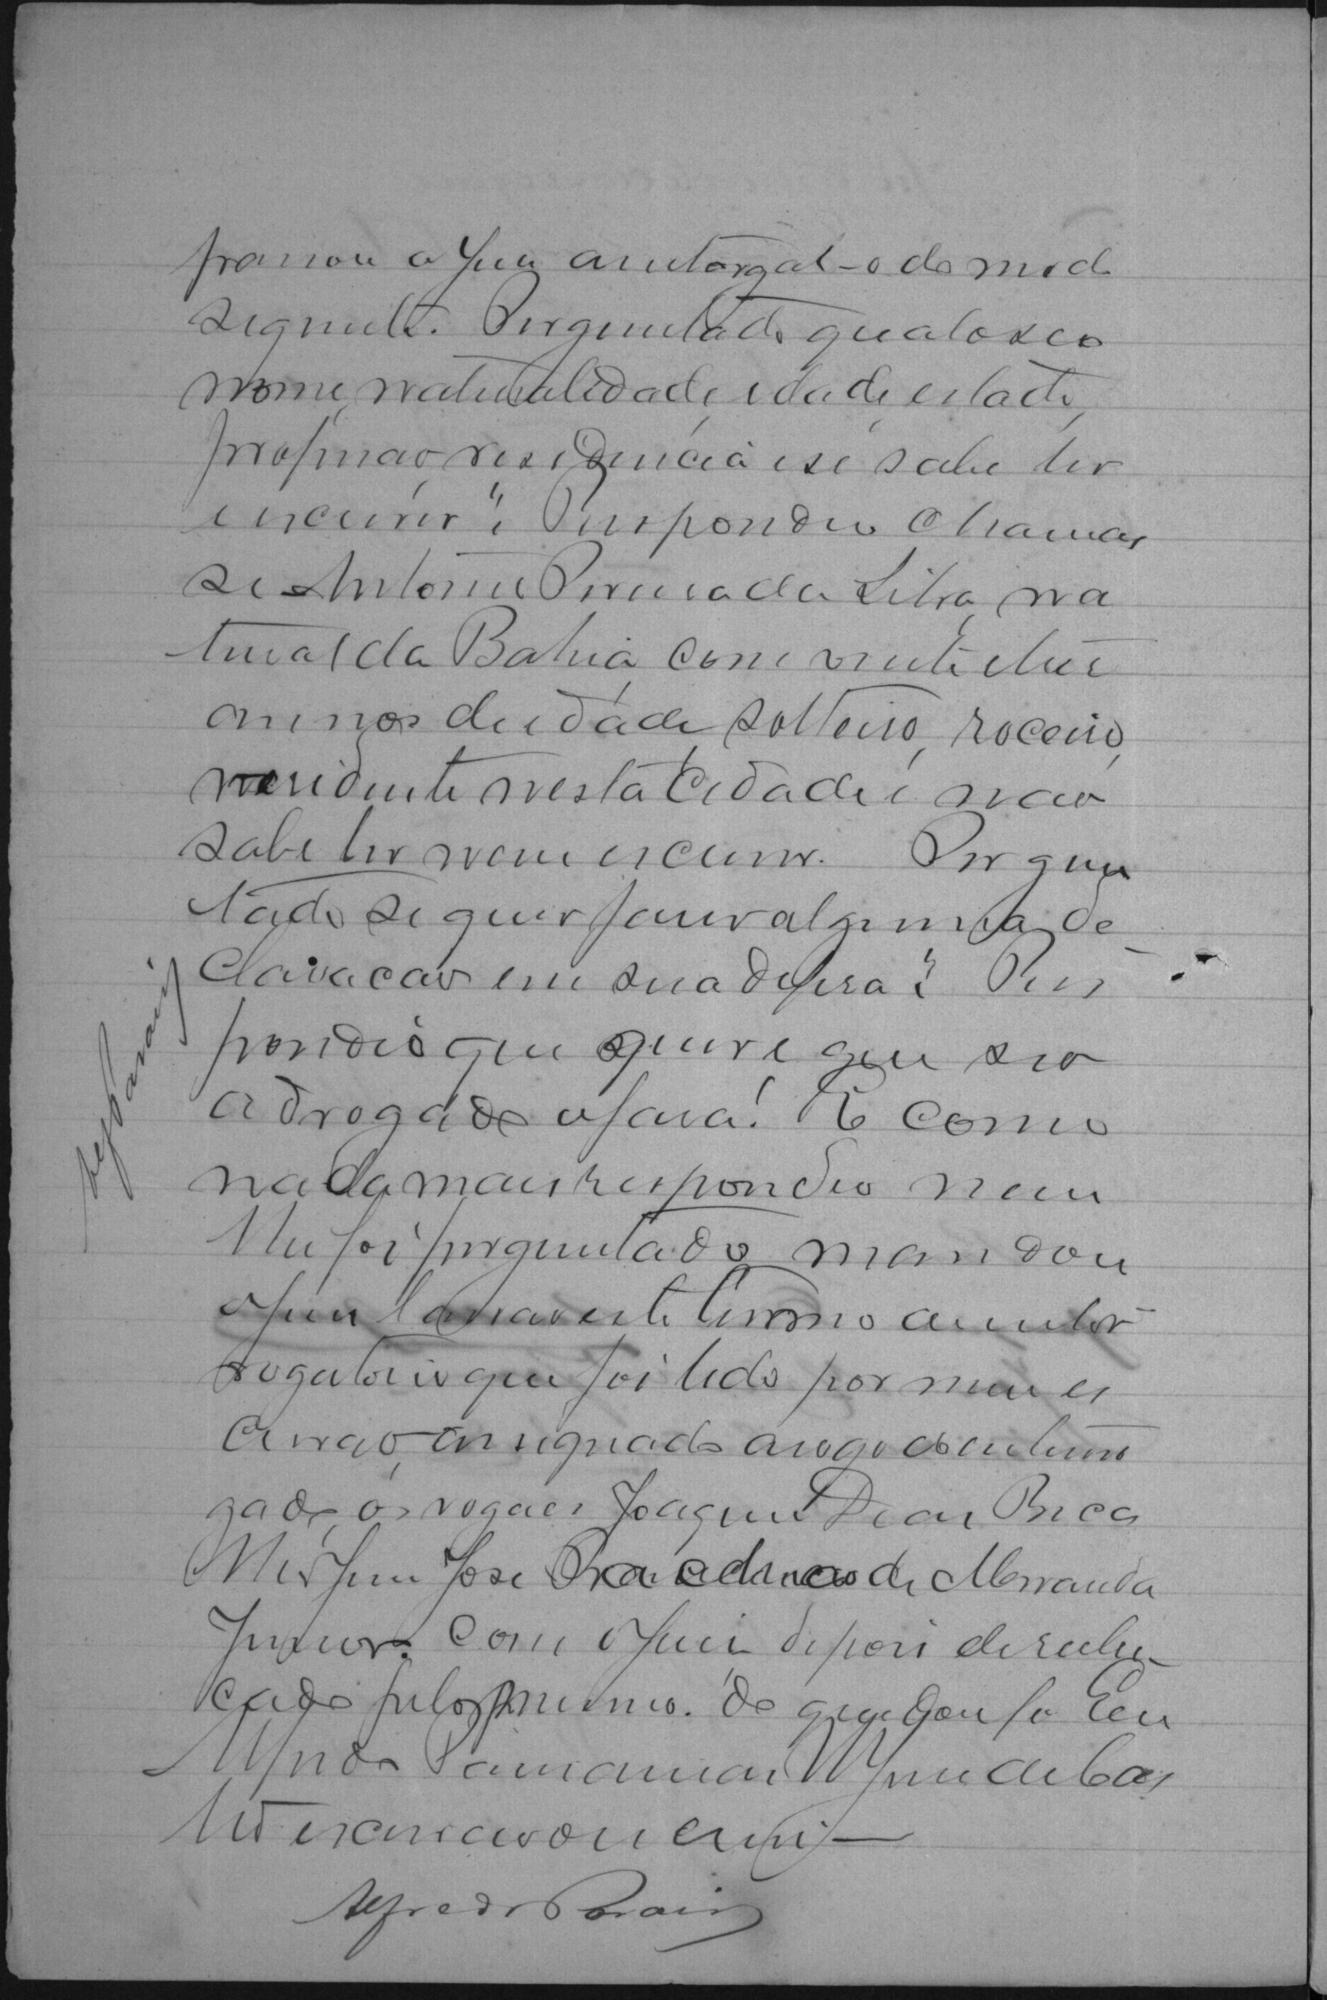 passou o Juiz a interrogal-o do modo
seguinte. Perguntado qual o seu
nome, naturalidade, idade, estado,
profissao, residencia e se sabe ler
e escrever? Respondeu chamar
se Antonio Pereira da Silva, na
tural da Bahia, com vinte e tres
annos de idade, solteiro, roceiro,
residente nesta Cidade e não
sabe ler nem escrever. Pergun
tado se quer fazer alguma de
claracão em sua defesa? Res
pondeo que quer e que seu
advogado o fará. E como
nada mais respondeo nem
lhe foi perguntado mandou
o Juiz lavrar este termo de inter
rogatorio que foi lido por mim es
crivaõ, assignado a rogo do interro
gado, os vogaes Joaquim
José de Miranda
Junior com o Juiz depois de rubri
cado pelo mesmo. do que dou fé. Eu
escrivão o escrevi
Alfredo